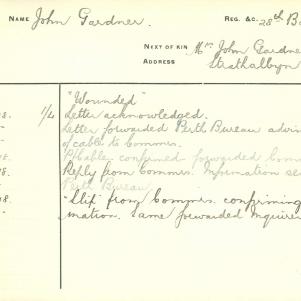 NAME John Gardner. REG. &C. 28th Ba
NEXT OF KIN Mrs John Gardne
ADDRESS Strathalbyn
"Wounded"
8. 1/4 Letter acknowledged.
" Letter forwarded Perth Bureau advis
" of cable to Commrs.
8. Cable confirmed forwarded Com
8. Reply from Commrs. Information se
" Perth Bureau.
18. "Slip" from Commrs. confirming
" mation. Same forwarded Inquirer